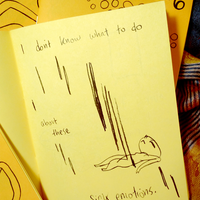 I don't know what to do
about
these
emotions.
6